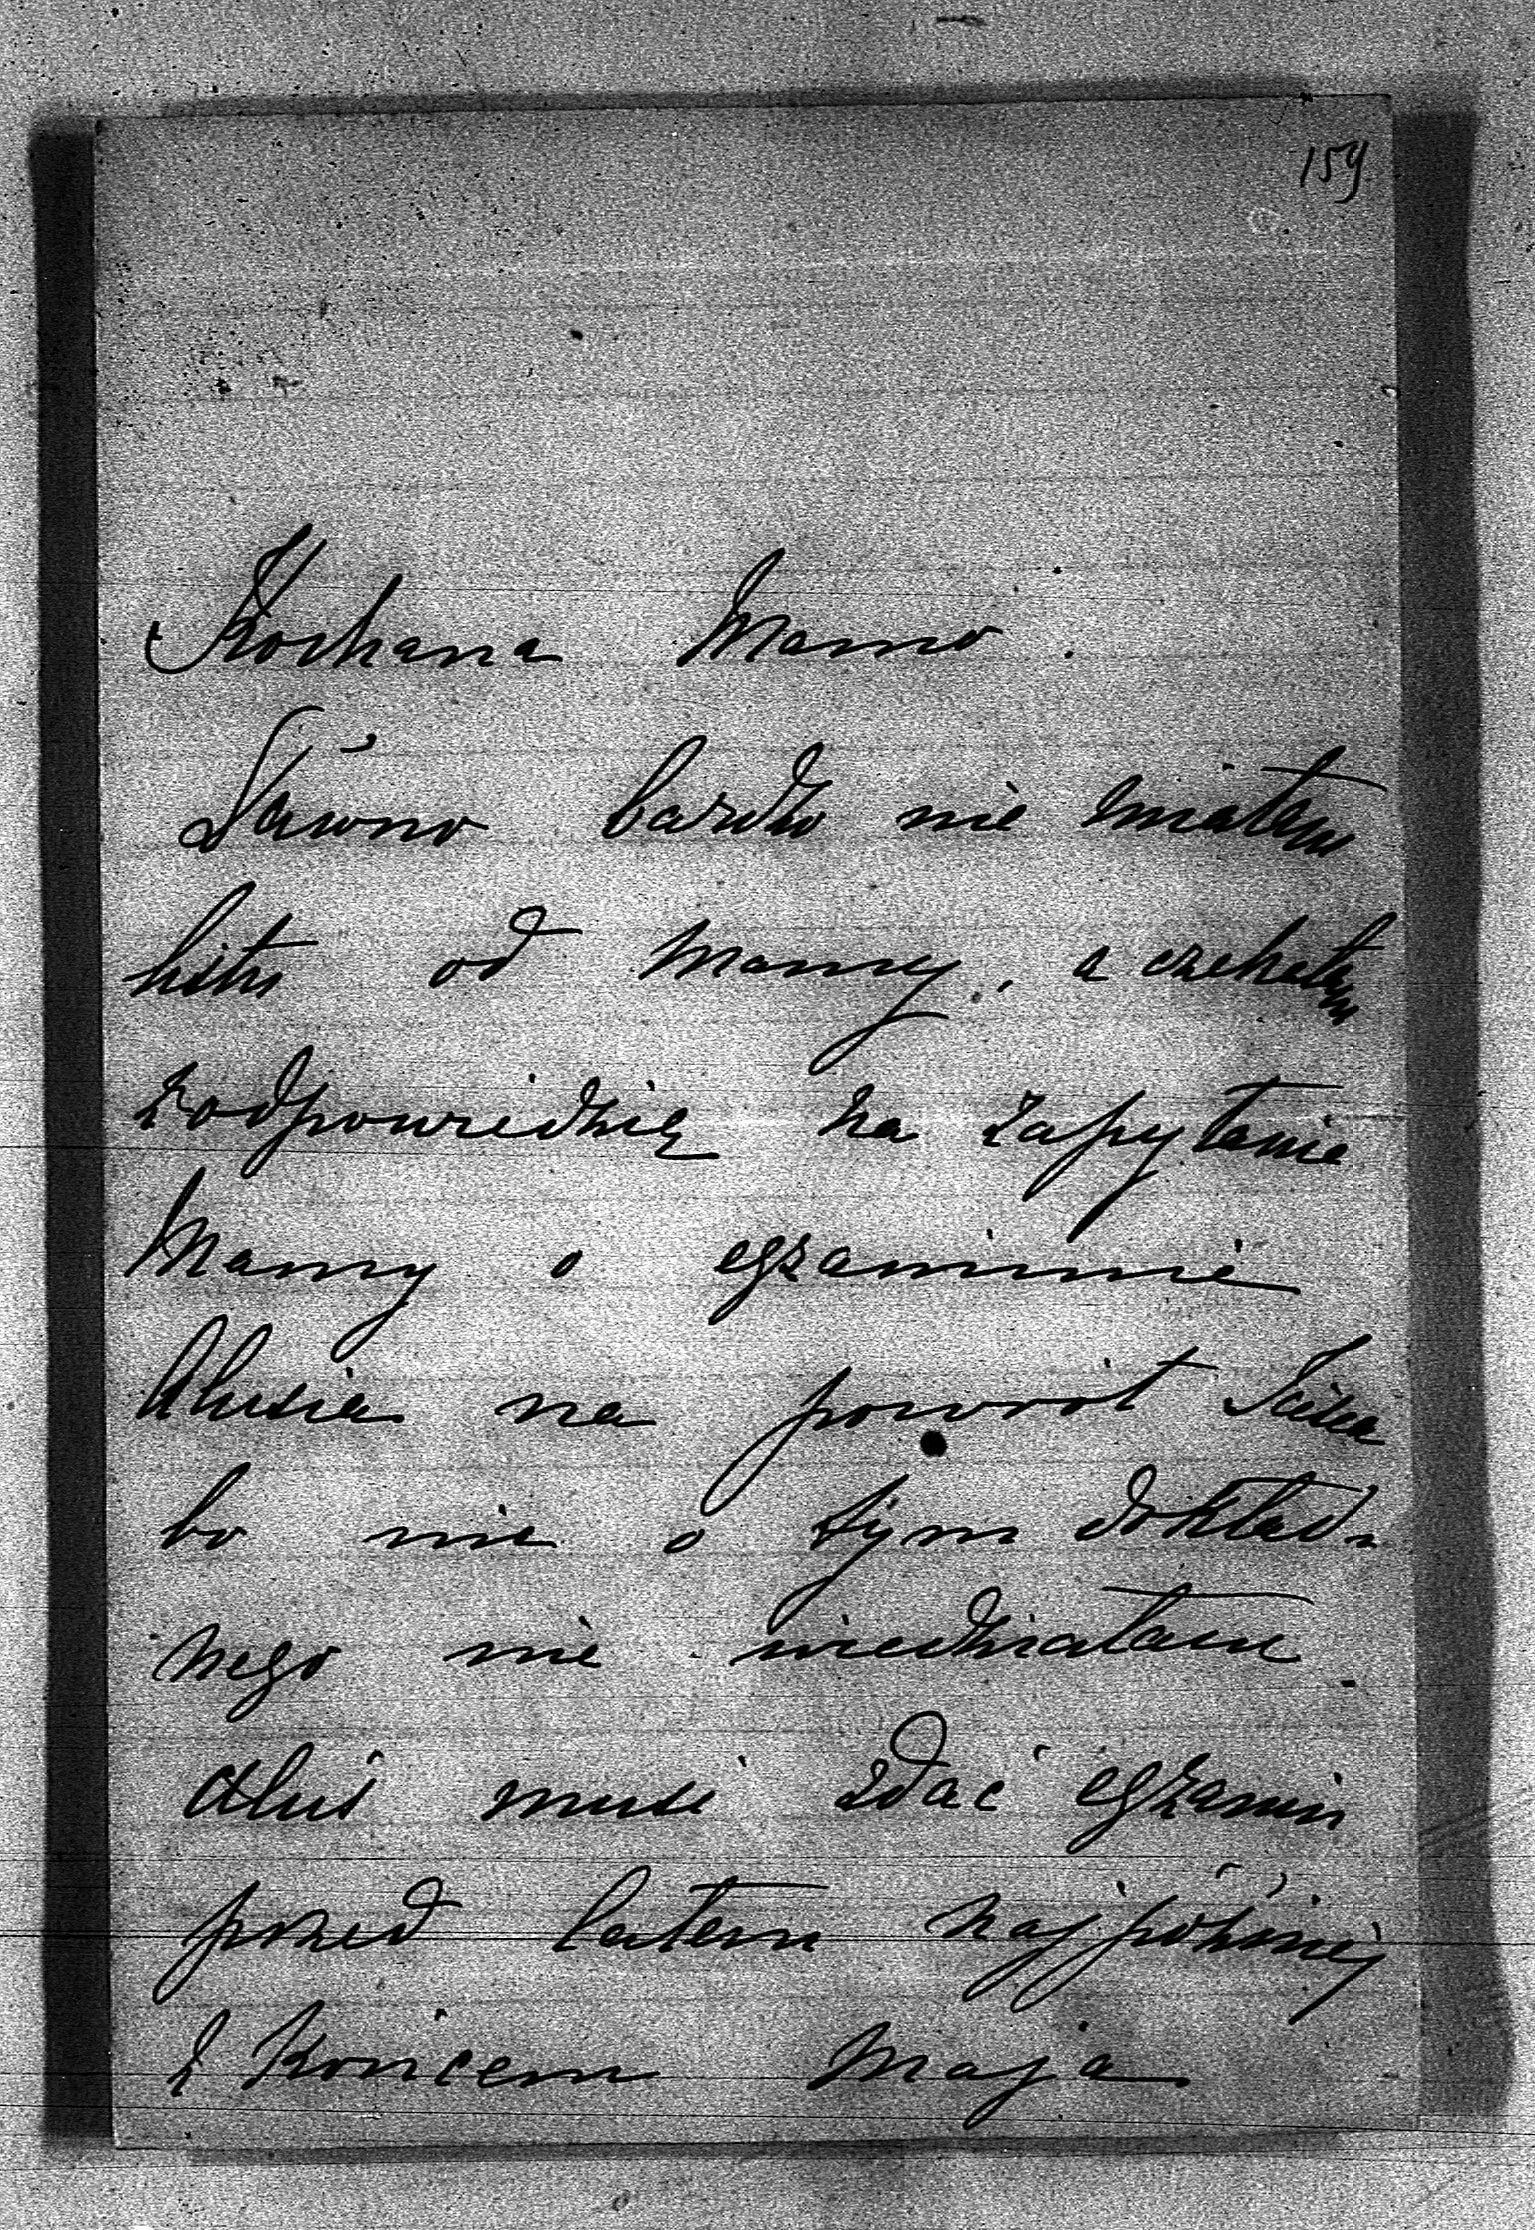 159
Kochana Mamo.
Dawno bardzo nie miałem
listu od Mamy, a czekałem
z odpowiedzią na zapytanie
Mamy o egzaminie
Alusia na powrót
bo nic o tym dokład-
nego nie wiedziałam.
Aluś musi zdać egzamin
przed latem najpóźniej
z końcem maja